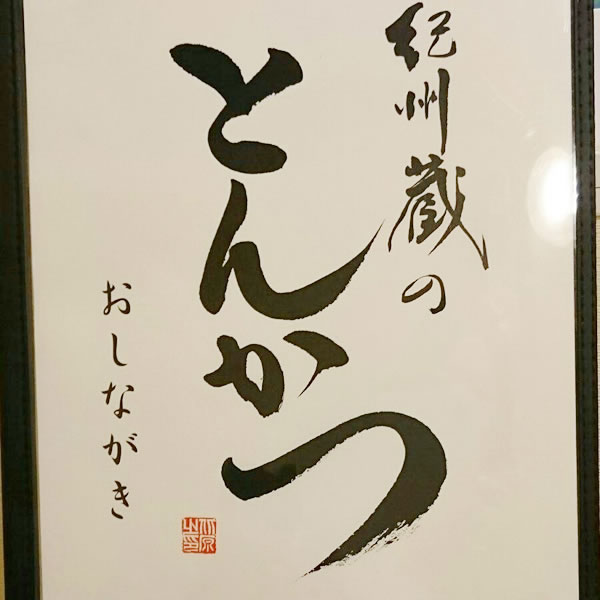 紀州蔵の
とんかつ
おしながき